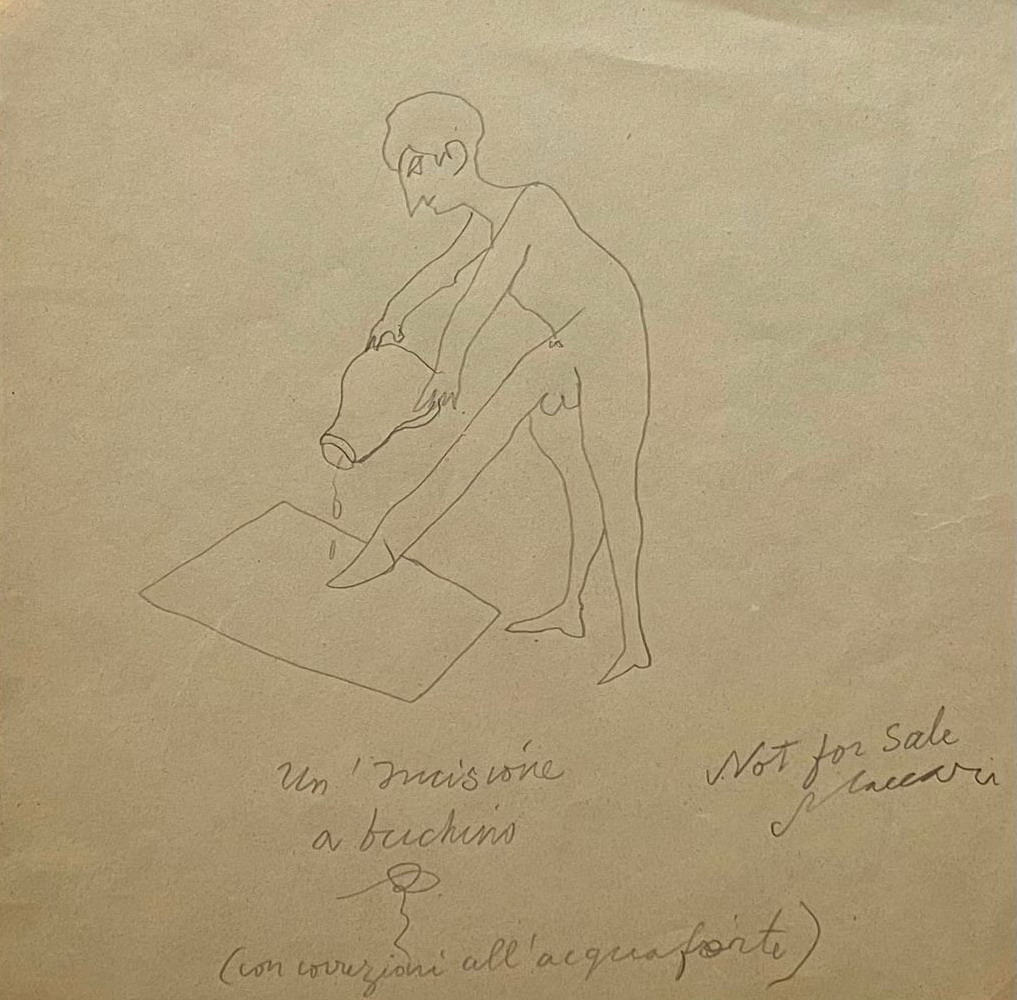 Un' Incisione
a buchino
(con correzioni all'acquaforte)
Not for Sale
Maccari